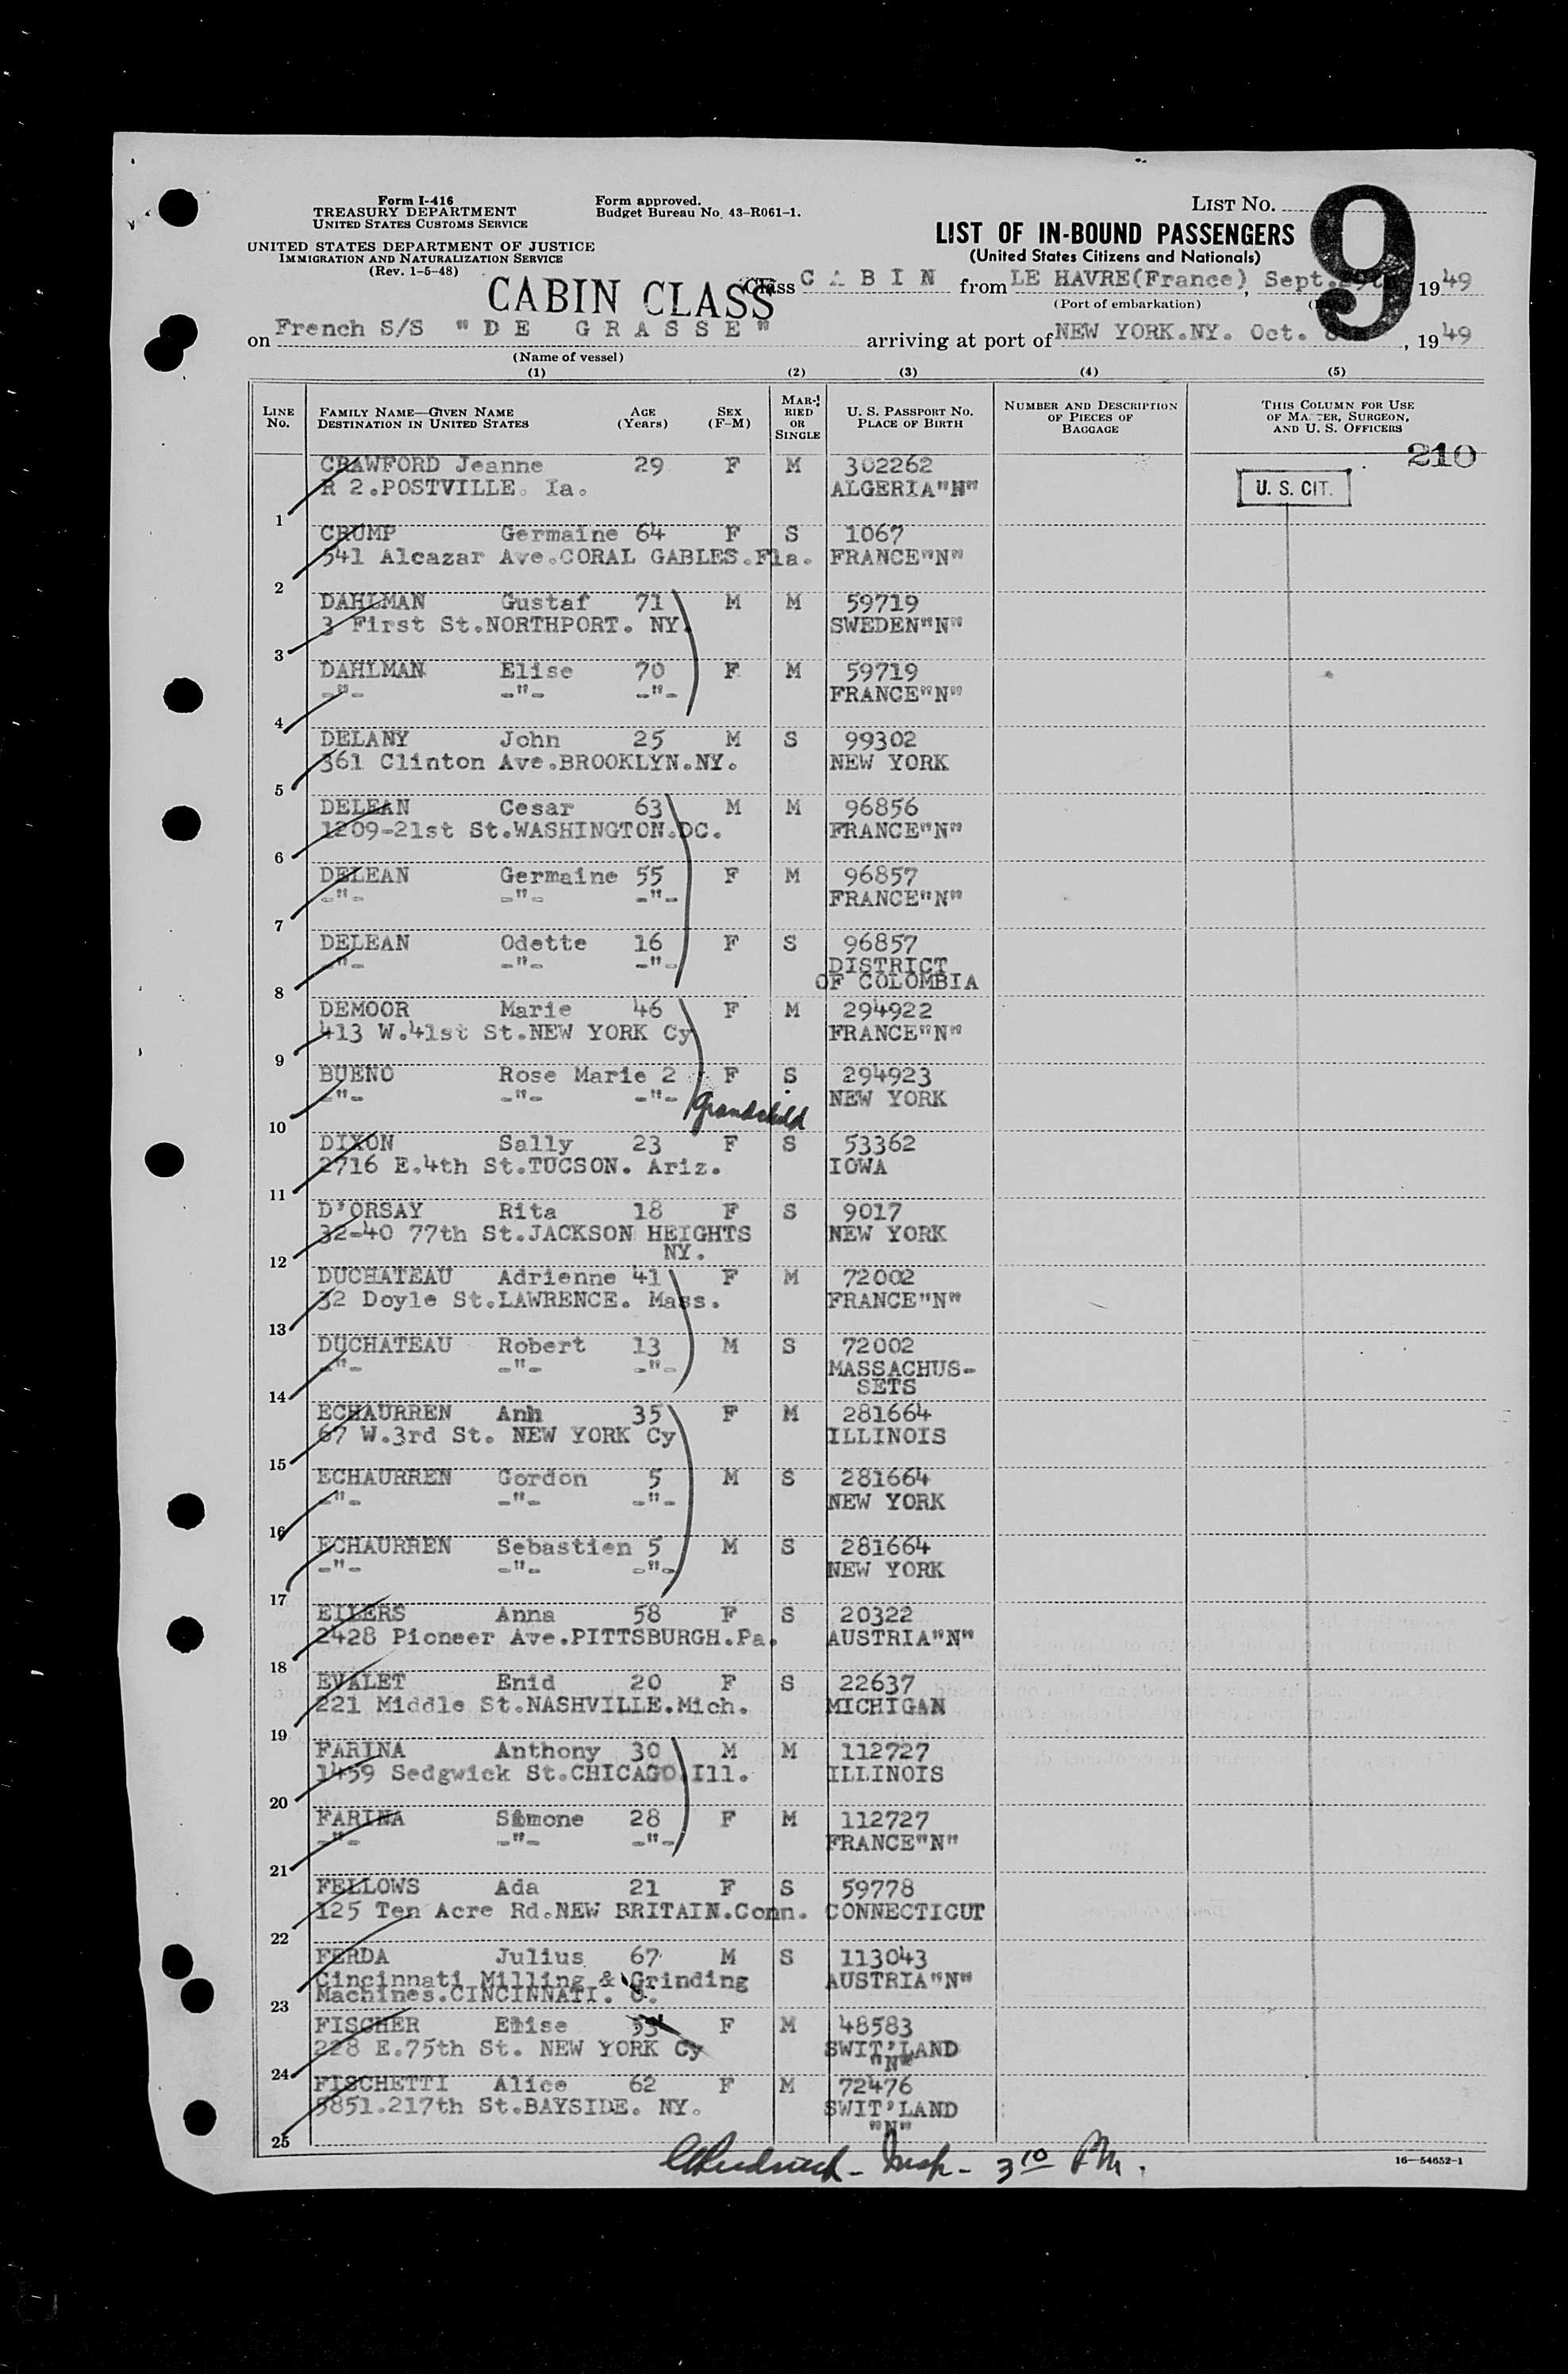 Form I-416
TREASURY DEPARTMENT
UNITED STATES CUSTOMS SERVICE
UNITED STATES DEPARTMENT OF JUSTICE
IMMIGRATION AND NATURALIZATION SERVICE
(Rev. 1-5-48)
Form approved.
Budget Bureau No. 43-R061-1.
LIST NO.
9
LIST OF IN-BOUND PASSENGERS
(United States Citizens and Nationals)
CABIN CLASS
Class C A B I N from LE HAVRE(France), Sept. 1949
(Port of embarkation)
on French S/S "D E G R A S S E" arriving at port of NEW YORK.NY. Oct. , 1949
(Name of vessel)
(1) (2) (3) (4) (5)
LINE No. FAMILY NAME—GIVEN NAME DESTINATION IN UNITED STATES AGE (Years) SEX (F-M) MARRIED OR SINGLE U. S. PASSPORT NO. PLACE OF BIRTH NUMBER AND DESCRIPTION OF PIECES OF BAGGAGE THIS COLUMN FOR USE OF MASTER, SURGEON, AND U. S. OFFICERS
210
U. S. CIT.
CRAWFORD Jeanne 29 F M 302262
R 2.POSTVILLE. Ia. ALGERIA"N"
1
CRUMP Germaine 64 F S 1067
541 Alcazar Ave.CORAL GABLES.Fla. FRANCE"N"
2
DAHLMAN Gustaf 71 M M 59719
3 First St.NORTHPORT. NY. SWEDEN"N"
3
DAHLMAN Elise 70 F M 59719
-"- -"- -"- FRANCE"N"
4
DELANY John 25 M S 99302
361 Clinton Ave.BROOKLYN.NY. NEW YORK
5
DELEAN Cesar 63 M M 96856
1209-21st St.WASHINGTON.DC. FRANCE"N"
6
DELEAN Germaine 55 F M 96857
-"- -"- -"- FRANCE"N"
7
DELEAN Odette 16 F S 96857
-"- -"- -"- DISTRICT
OF COLOMBIA
8
DEMOOR Marie 46 F M 294922
413 W.41st St.NEW YORK Cy FRANCE"N"
9
BUENO Rose Marie 2 F S 294923
-"- -"- -"- Grandchild NEW YORK
10
DIXON Sally 23 F S 53362
2716 E.4th St.TUCSON. Ariz. IOWA
11
D'ORSAY Rita 18 F S 9017
32-40 77th St.JACKSON HEIGHTS NEW YORK
NY.
12
DUCHATEAU Adrienne 41 F M 72002
32 Doyle St.LAWRENCE. Mass. FRANCE"N"
13
DUCHATEAU Robert 13 M S 72002
-"- -"- -"- MASSACHUS-
SETS
14
ECHAURREN Ann 35 F M 281664
67 W.3rd St. NEW YORK Cy ILLINOIS
15
ECHAURREN Gordon 5 M S 281664
-"- -"- -"- NEW YORK
16
ECHAURREN Sebastien 5 M S 281664
-"- -"- -"- NEW YORK
17
EILERS Anna 58 F S 20322
2428 Pioneer Ave.PITTSBURGH.Pa. AUSTRIA"N"
18
EVALET Enid 20 F S 22637
221 Middle St.NASHVILLE.Mich. MICHIGAN
19
FARINA Anthony 30 M M 112727
1459 Sedgwick St.CHICAGO.Ill. ILLINOIS
20
FARINA Simone 28 F M 112727
-"- -"- -"- FRANCE"N"
21
FELLOWS Ada 21 F S 59778
125 Ten Acre Rd.NEW BRITAIN.Conn. CONNECTICUT
22
FERDA Julius 67 M S 113043
Cincinnati Milling & Grinding AUSTRIA"N"
Machines.CINCINNATI. O.
23
FISCHER Elise 53 F M 48583
228 E.75th St. NEW YORK Cy SWIT'LAND
"N"
24
FISCHETTI Alice 62 F M 72476
5851.217th St.BAYSIDE. NY. SWIT'LAND
"N"
25
Insp - 3 10 PM.
16—54652-1